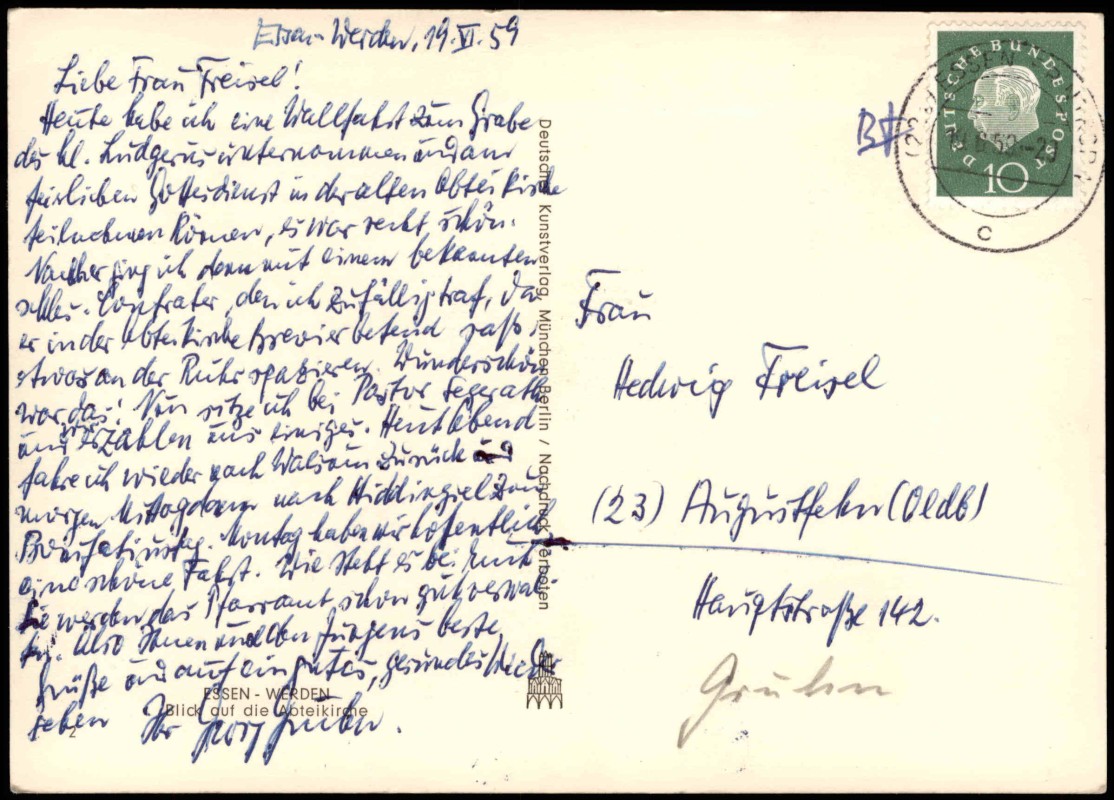 Essen-Werden, 19.VI.59
Liebe Frau Freisel!
Heute habe ich eine Wallfahrt zum Grabe
des hl. Ludgerus unternommen und am
feierlichen Gottesdienst in der alten Abteikirche
teilnehmen können, es war recht schön.
Nachher ging ich dann mit einem bekannten
schles. Confrater, den ich zufällig traf, da
er in der Abteikirche Brevier betend sass,
etwas an der Ruhr spazieren. Wunderschön
war das! Nun sitze ich bei Pastor
und wir erzählen uns einiges. Heut Abend
fahre ich wieder nach Walsum zurück und
morgen Mittag dann nach Hiddingsel zum
Bonifatiustag. Montag haben wir hoffentlich
eine schöne Fahrt. Wie steht es bei
Sie werden das Pfarramt schon gut verwal-
ten. Also Ihnen und den Jungens beste
Grüße und auf ein gutes, gesundes Wieder
sehen Ihr Georg Gruhn.
ESSEN - WERDEN
Blick auf die Abteikirche
2
Deutscher Kunstverlag, München Berlin / Nachdruck verboten
DEUTSCHE BUNDESPOST
10
ESSEN
19.6.59.-2
c
Frau
Hedwig Freisel
(23) Augustfehn (Oldb)
Hauptstraße 142.
Gruhn